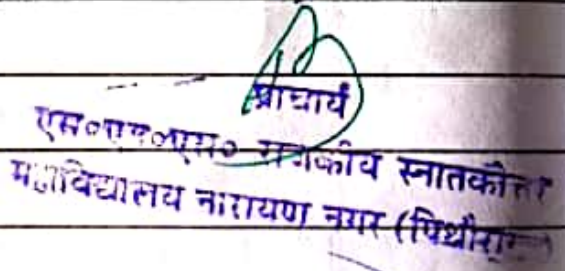 प्राचार्य
एस०एन०एस० राजकीय स्नातकोत्तर
महाविद्यालय नारायण नगर (पिथौरागढ़)